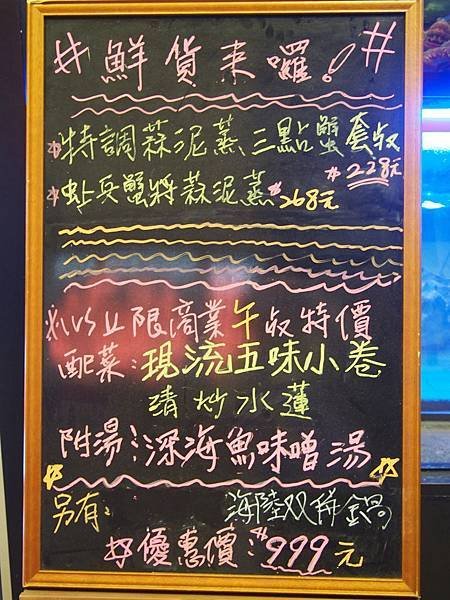 #鮮貨来囉!#
*特調蒜泥蒸三點蟹套收
$228元
*蚍兵蟹將蒜泥蒸$268元
*以上限商業午收特價
配菜:現流五味小卷
清炒水蓮
附湯:深海魚味噌湯
另有: 海陸双併鍋
優惠價:$999元